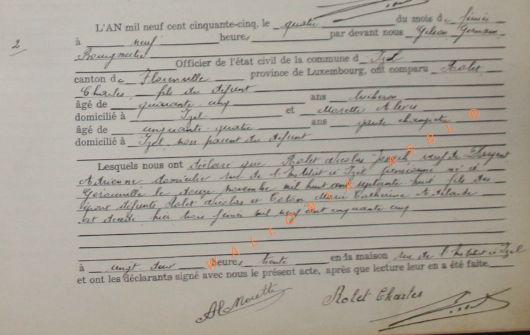 2
L'AN mil neuf cent cinquante-cinq, le quatre du mois de
à neuf heures, par devant nous Germain
Bourgmestre
Officier de l'état civil de la commune d Izel
canton de Florenville province de Luxembourg, ont comparu Rolet
Charles, fils du défunt
âgé de quarante cinq ans
domicilié à Izel et Marette
âgé de cinquante quatre ans garde champêtre
domicilié à Izel, non parent du défunt
Lesquels nous ont déclaré que Rolet Nicolas Joseph, veuf de
Adrienne domicilié rue de l' à Izel pensionné né à
le douze novembre mil huit cent septante huit fils des
époux défunts Rolet Nicolas et Marie Catherine
est décédé hier trois mil neuf cent cinquante cinq
à vingt deux heures trente en la maison rue de l' à Izel
et ont les déclarants signé avec nous le présent acte, après que lecture leur en a été faite.
Al. Marette Rolet Charles